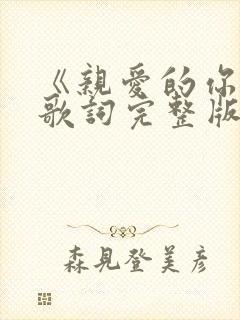 《親愛的你
歌詞完整版
森見登美彥